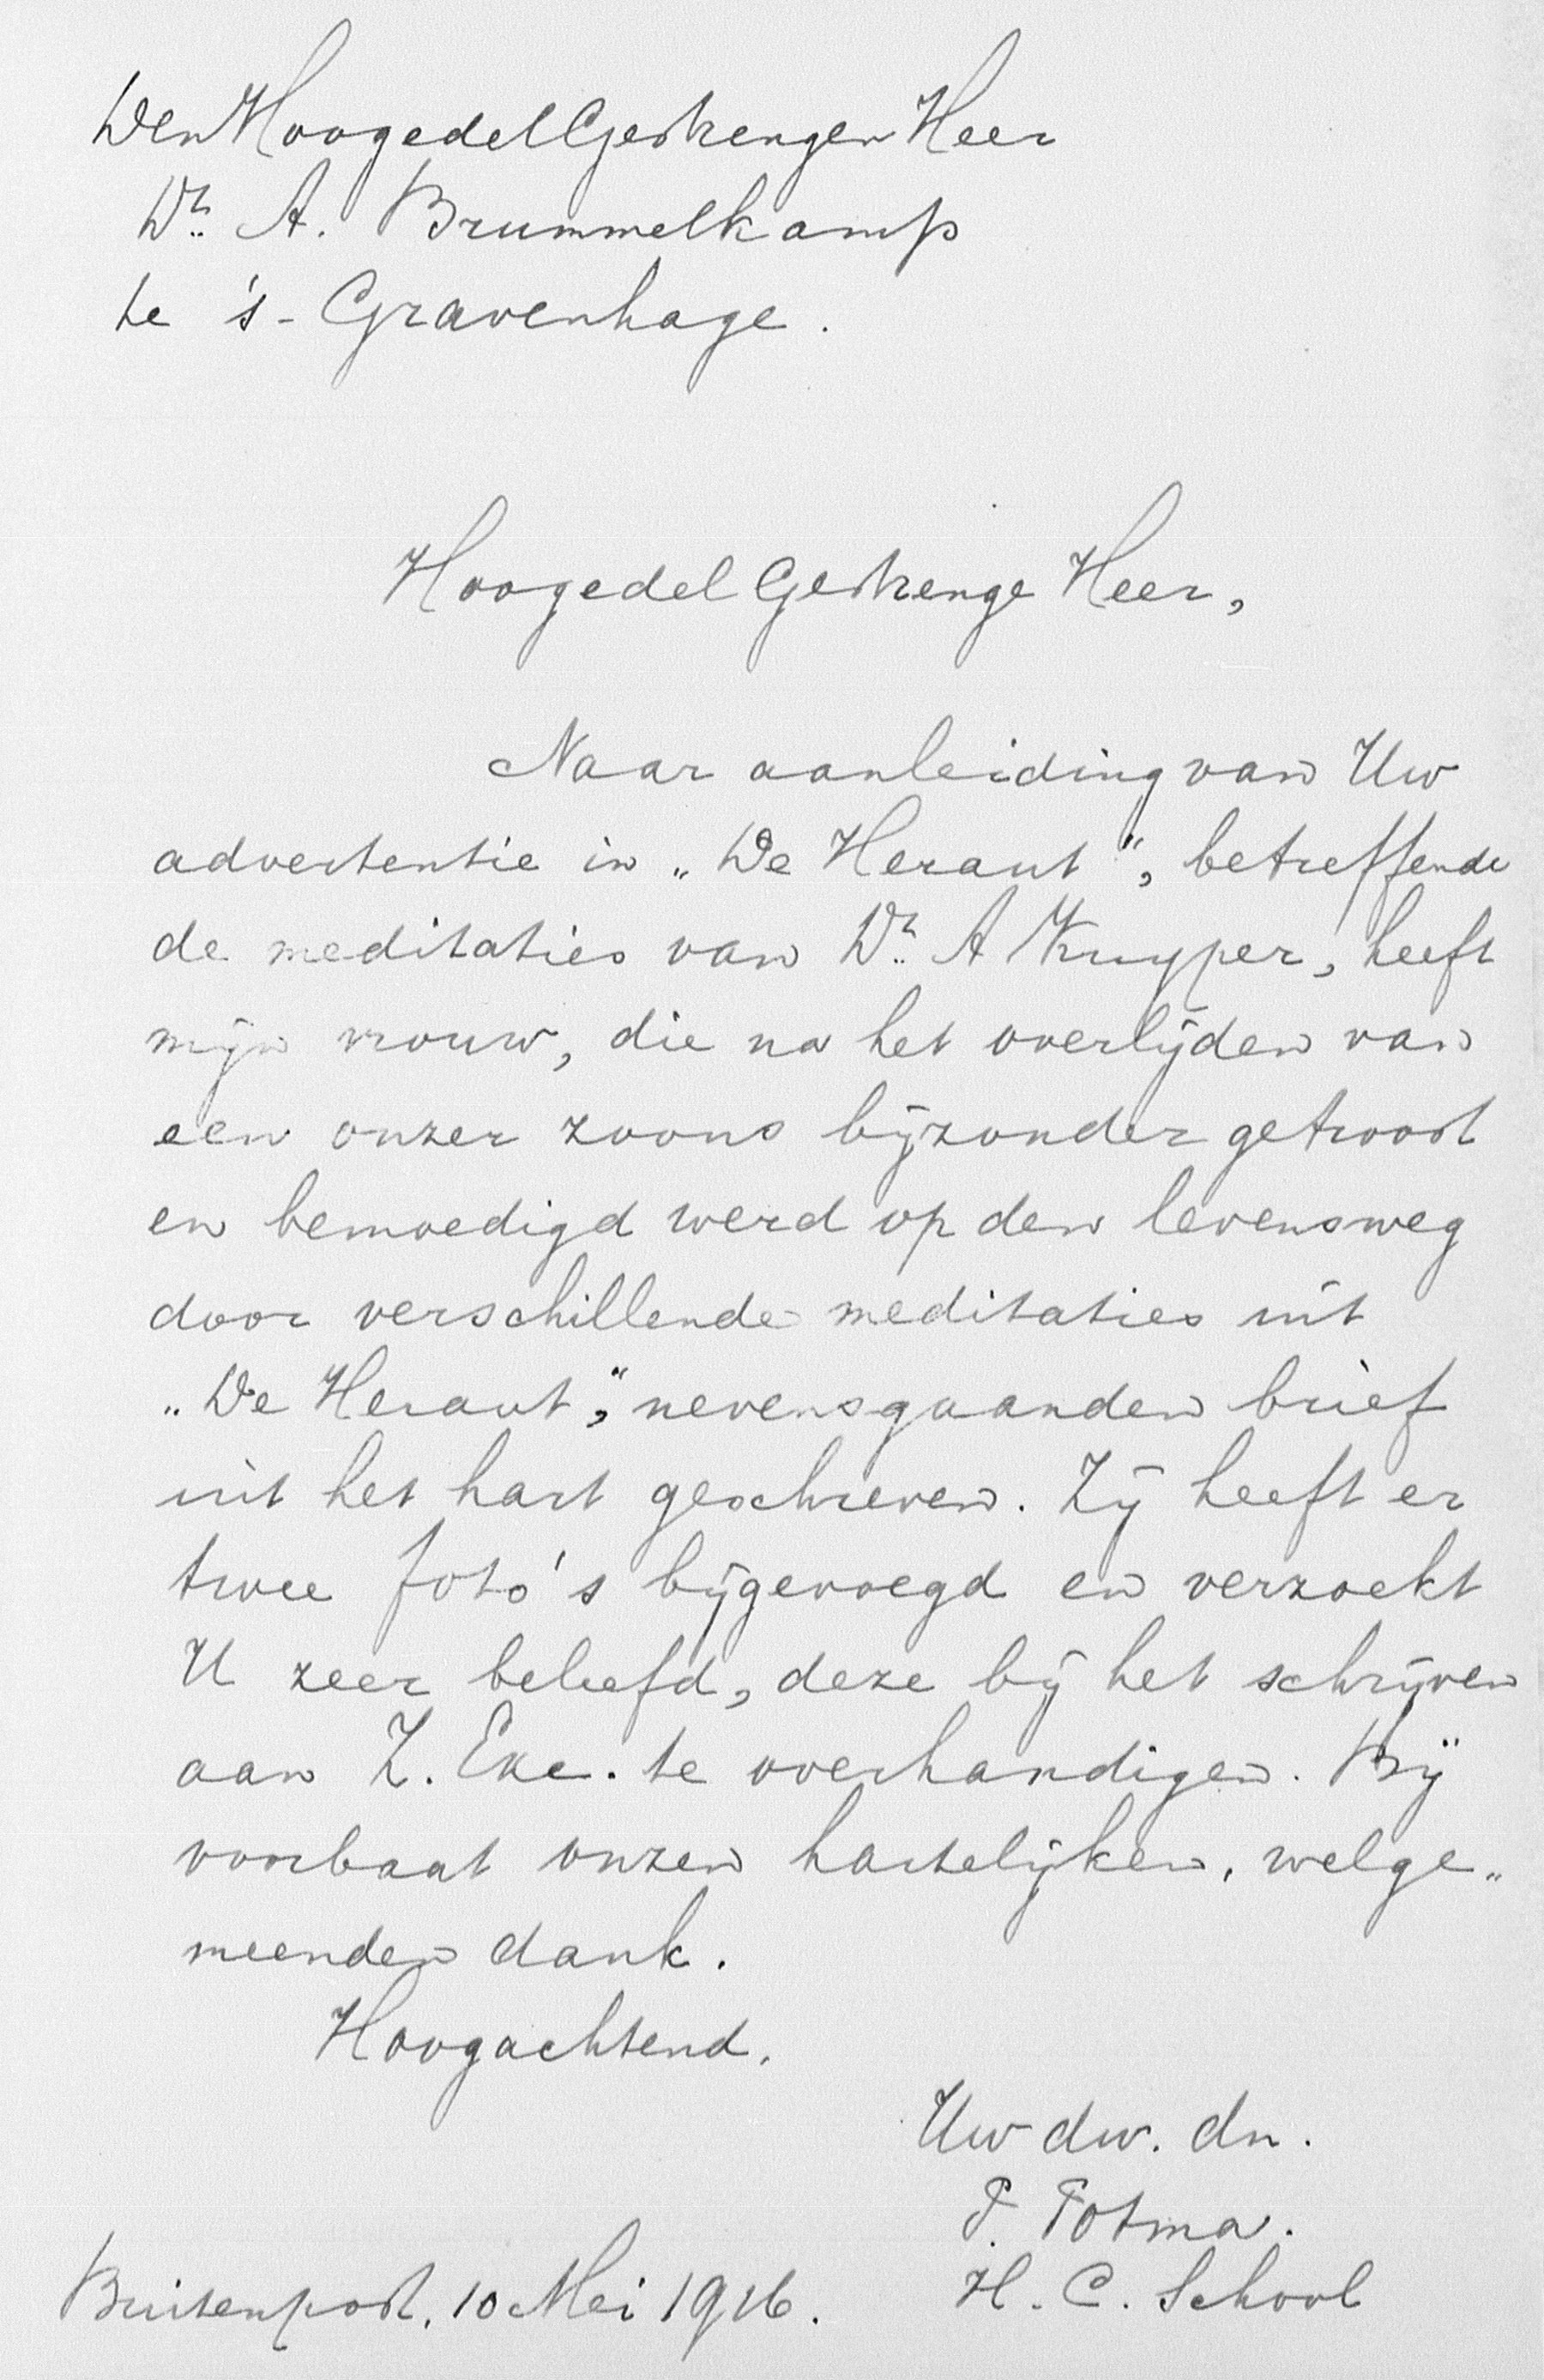 Den HoogedelGestrengen Heer
Dr. A. Brummelkamp
te 's-Gravenhage.
Hoogedel Gestrenge Heer,
Naar aanleiding van Uw
advertentie in „De Heraut", betreffende
de meditaties van Dr. A Kuyper, heeft
mijn vrouw, die na het overlijden van
een onzer zoons bijzonder getroost
en bemoedigd werd op den levensweg
door verschillende meditaties uit
„De Heraut," nevensgaanden brief
uit het hart geschreven. Zij heeft er
twee foto's bijgevoegd en verzoekt
U zeer beleefd, deze bij het schrijven
aan Z. Exc. te overhandigen. Bij
voorbaat onzen hartelijken, welge„
meenden dank.
Hoogachtend.
Uw dw. dn.
F. Fotma.
H. C. School
Buitenpost, 10 Mei 1916.